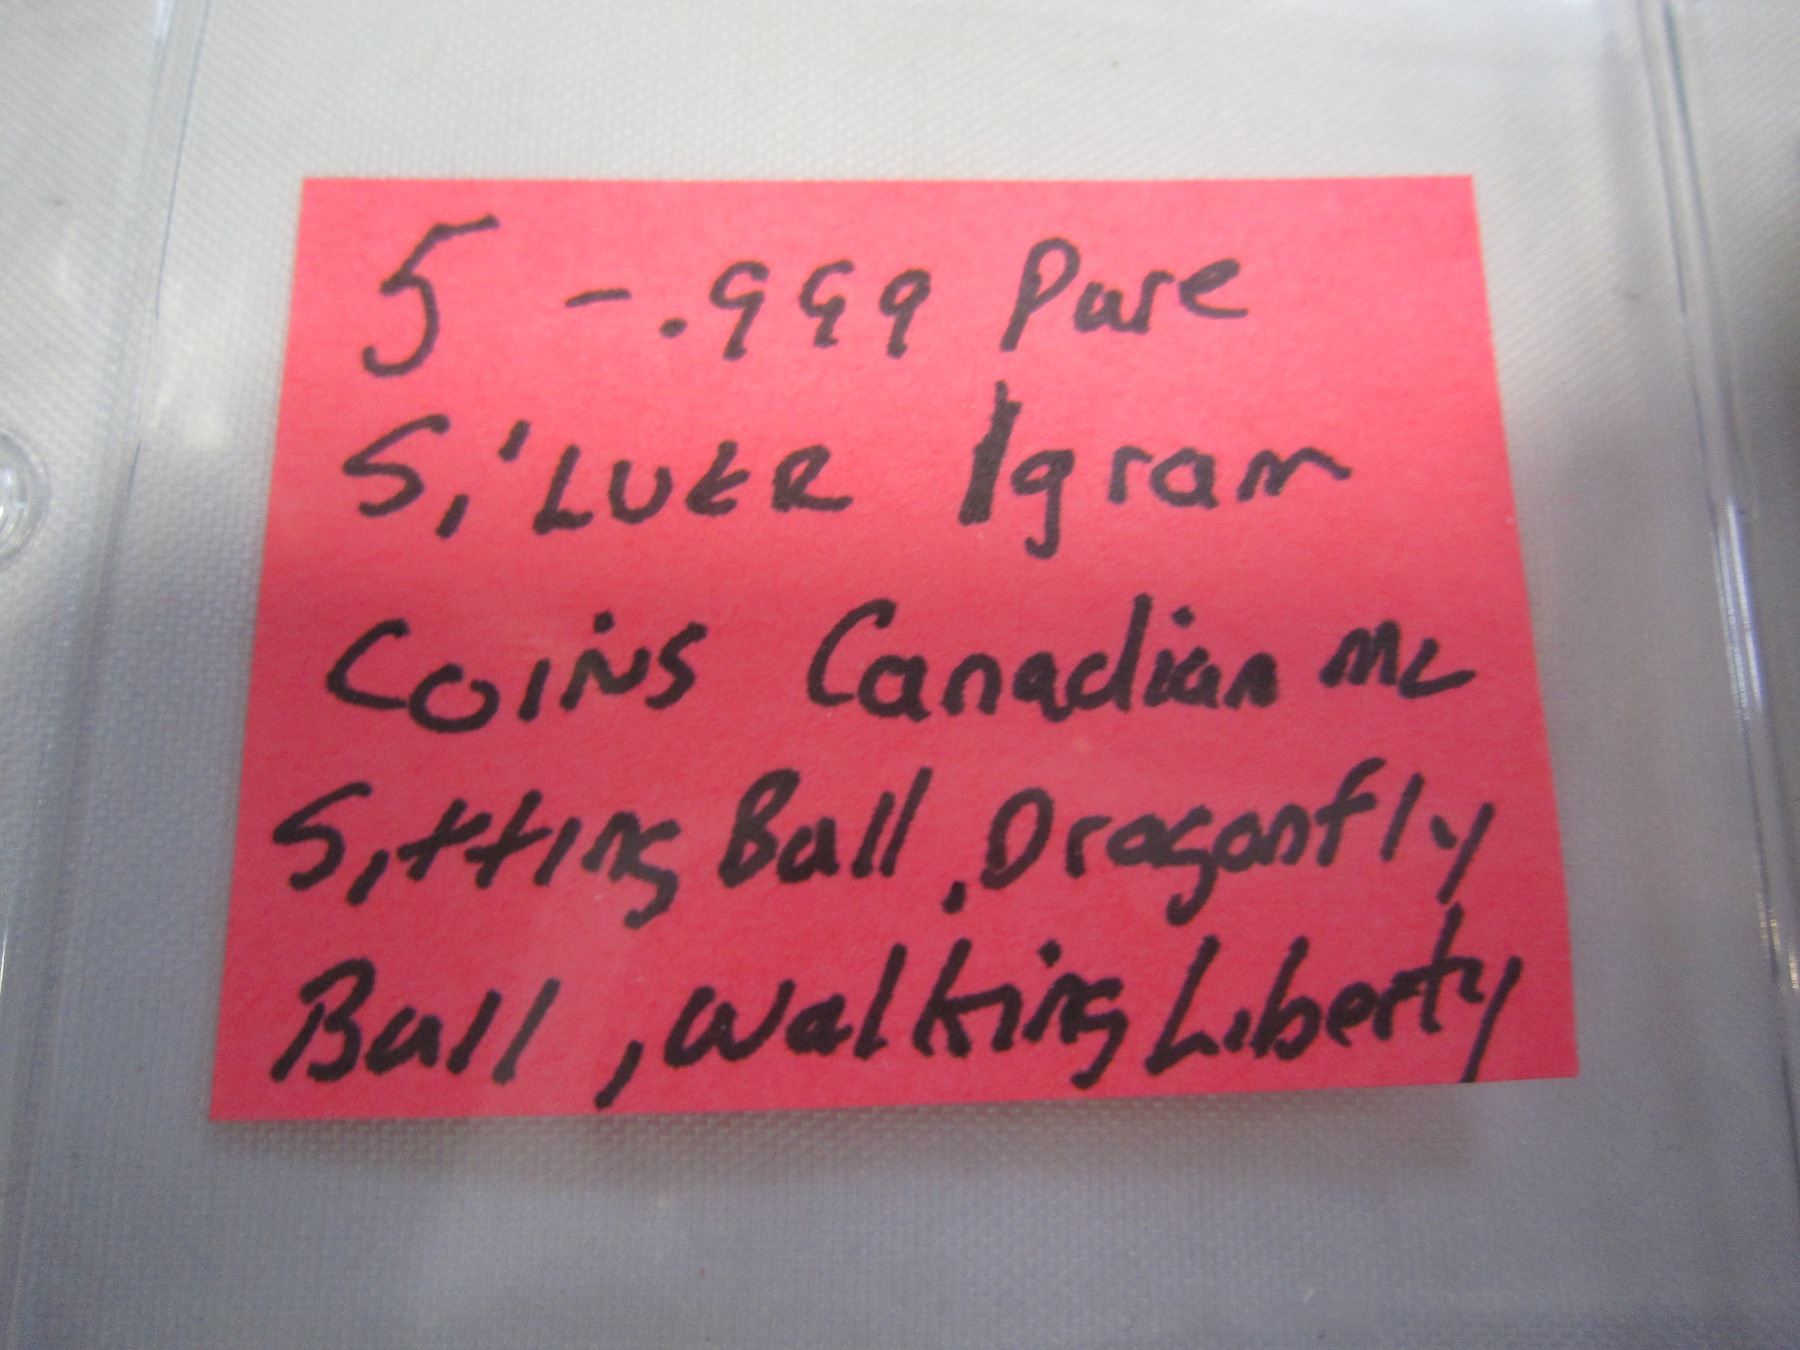 5 - .999 Pure
SiLVER 1gram
COINS Canadian ML
Sitting Bull, Dragonfly
Bull, Walking Liberty